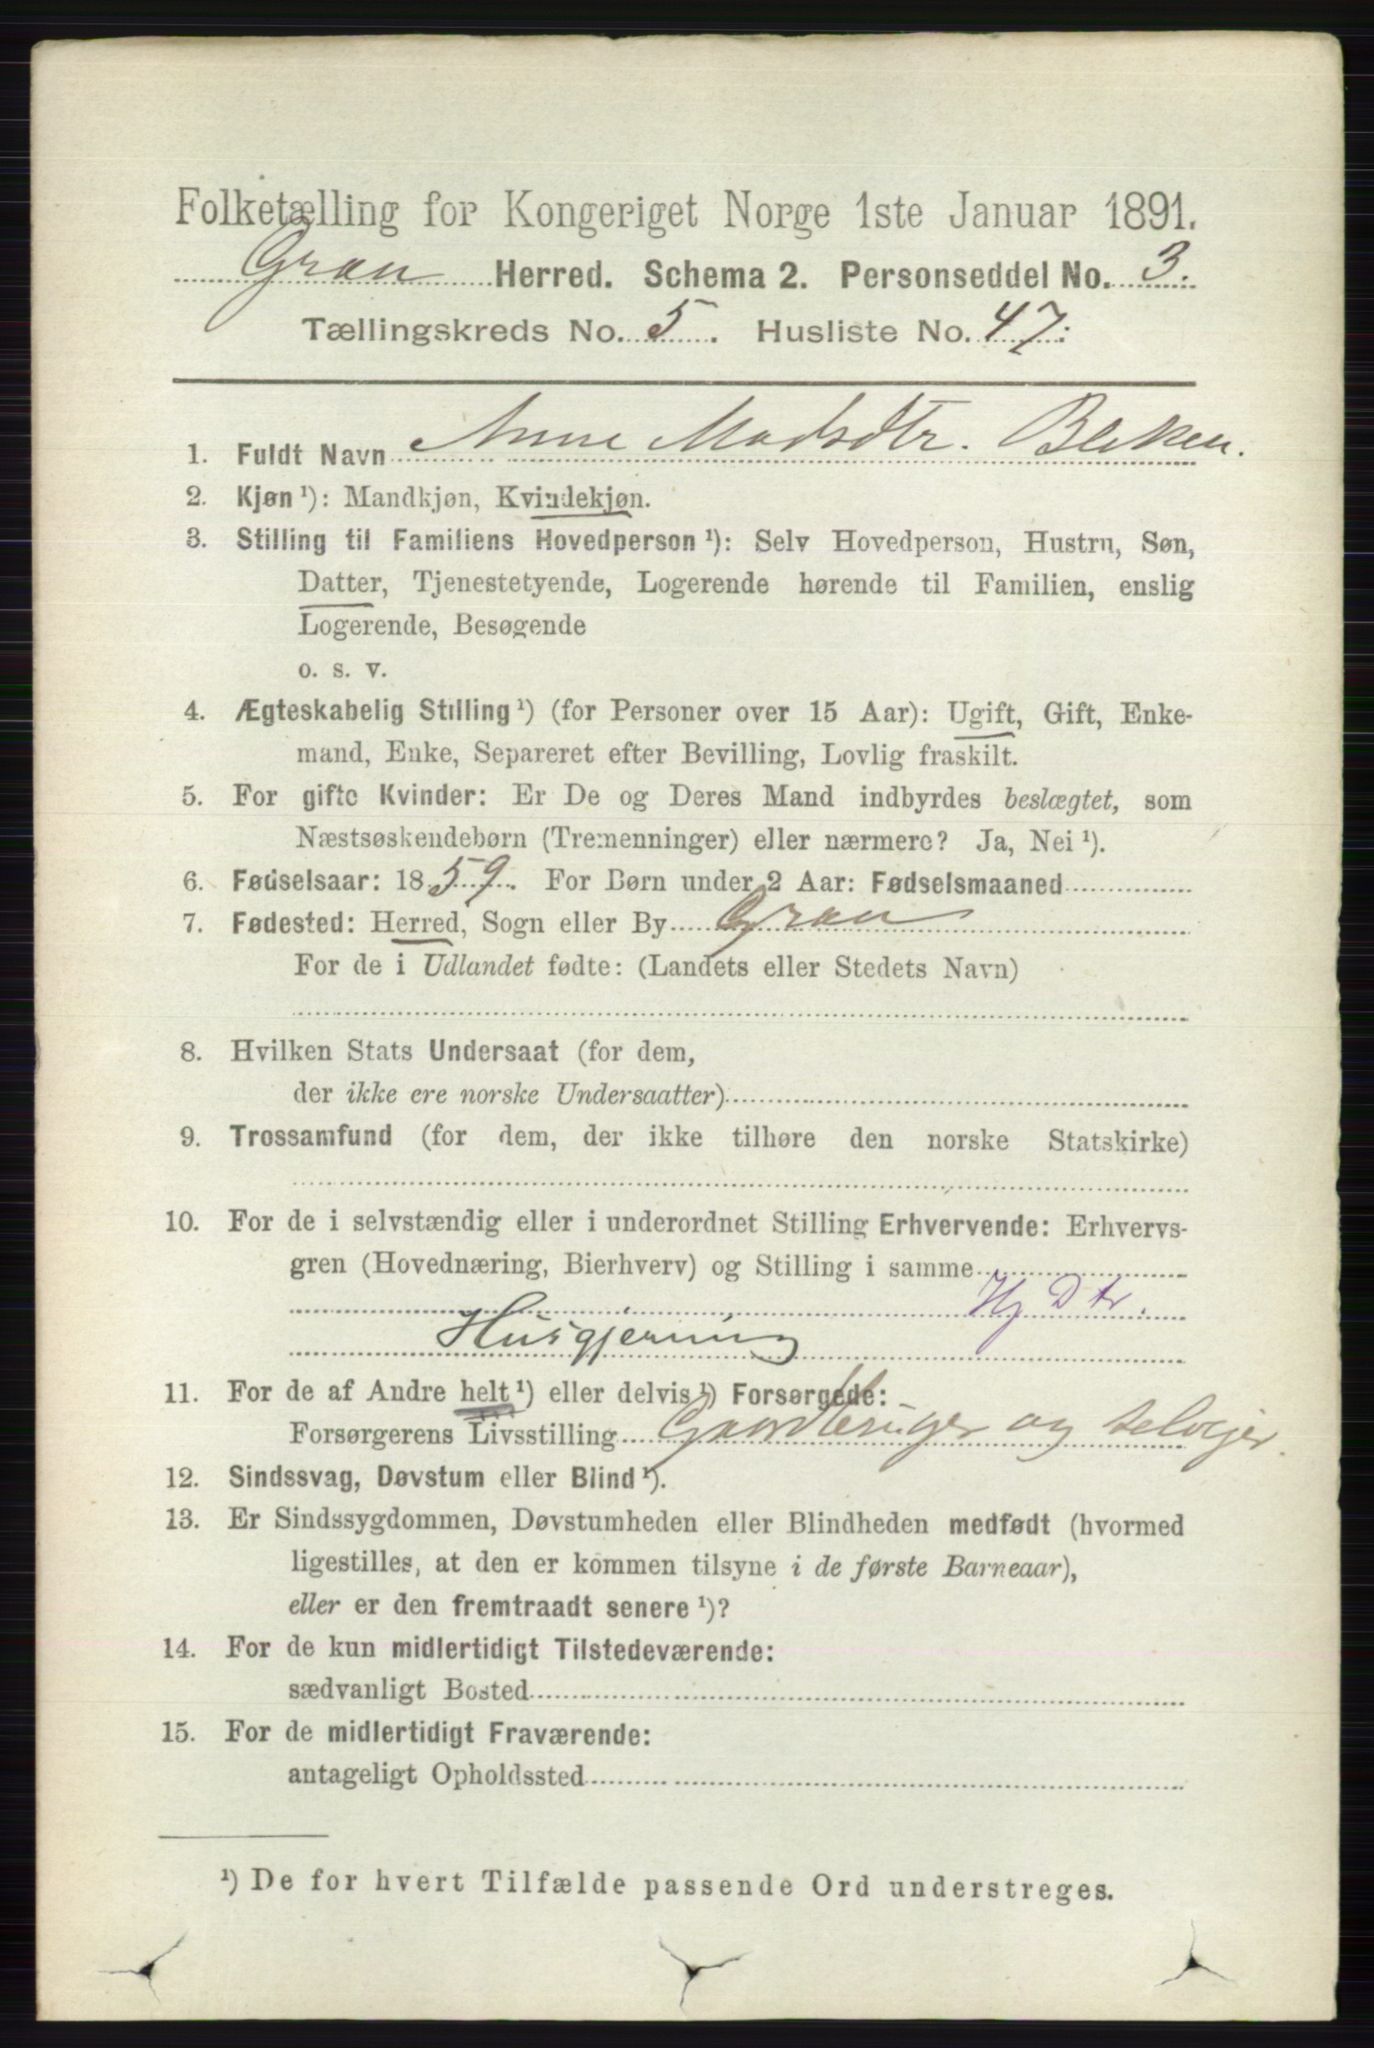 Folketælling for Kongeriget Norge 1ste Januar 1891.
Gran Herred. Schema 2. Personseddel No. 3.
Tællingskreds No. 5. Husliste No. 47.
1. Fuldt Navn Anne Madsdtr. Bleken.
2. Kjøn ¹): Mandkjøn, Kvindekjøn.
3. Stilling til Familiens Hovedperson ¹): Selv Hovedperson, Hustru, Søn,
Datter, Tjenestetyende, Logerende hørende til Familien, enslig
Logerende, Besøgende
o. s. v.
4. Ægteskabelig Stilling ¹) (for Personer over 15 Aar): Ugift, Gift, Enke-
mand, Enke, Separeret efter Bevilling, Lovlig fraskilt.
5. For gifte Kvinder: Er De og Deres Mand indbyrdes beslægtet, som
Næstsøskendebørn (Tremenninger) eller nærmere? Ja, Nei ¹).
6. Fødselsaar: 1859. For Børn under 2 Aar: Fødselsmaaned
7. Fødested: Herred, Sogn eller By Gran
For de i Udlandet fødte: (Landets eller Stedets Navn)
8. Hvilken Stats Undersaat (for dem,
der ikke ere norske Undersaatter)
9. Trossamfund (for dem, der ikke tilhøre den norske Statskirke)
10. For de i selvstændig eller i underordnet Stilling Erhvervende: Erhvervs-
gren (Hovednæring, Bierhverv) og Stilling i samme
Hj Dtr.
Husgjerning
11. For de af Andre helt ¹) eller delvis ¹) Forsørgede:
Forsørgerens Livsstilling Gaardbruger og selvejer.
12. Sindssvag, Døvstum eller Blind ¹).
13. Er Sindssygdommen, Døvstumheden eller Blindheden medfødt (hvormed
ligestilles, at den er kommen tilsyne i de første Barneaar),
eller er den fremtraadt senere ¹)?
14. For de kun midlertidigt Tilstedeværende:
sædvanligt Bosted
15. For de midlertidigt Fraværende:
antageligt Opholdssted
¹) De for hvert Tilfælde passende Ord understreges.